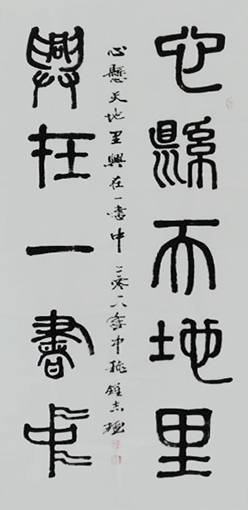 心縣天地里
興在一書中
心懸天地里興在一書中 二零一八年中秋 鍾